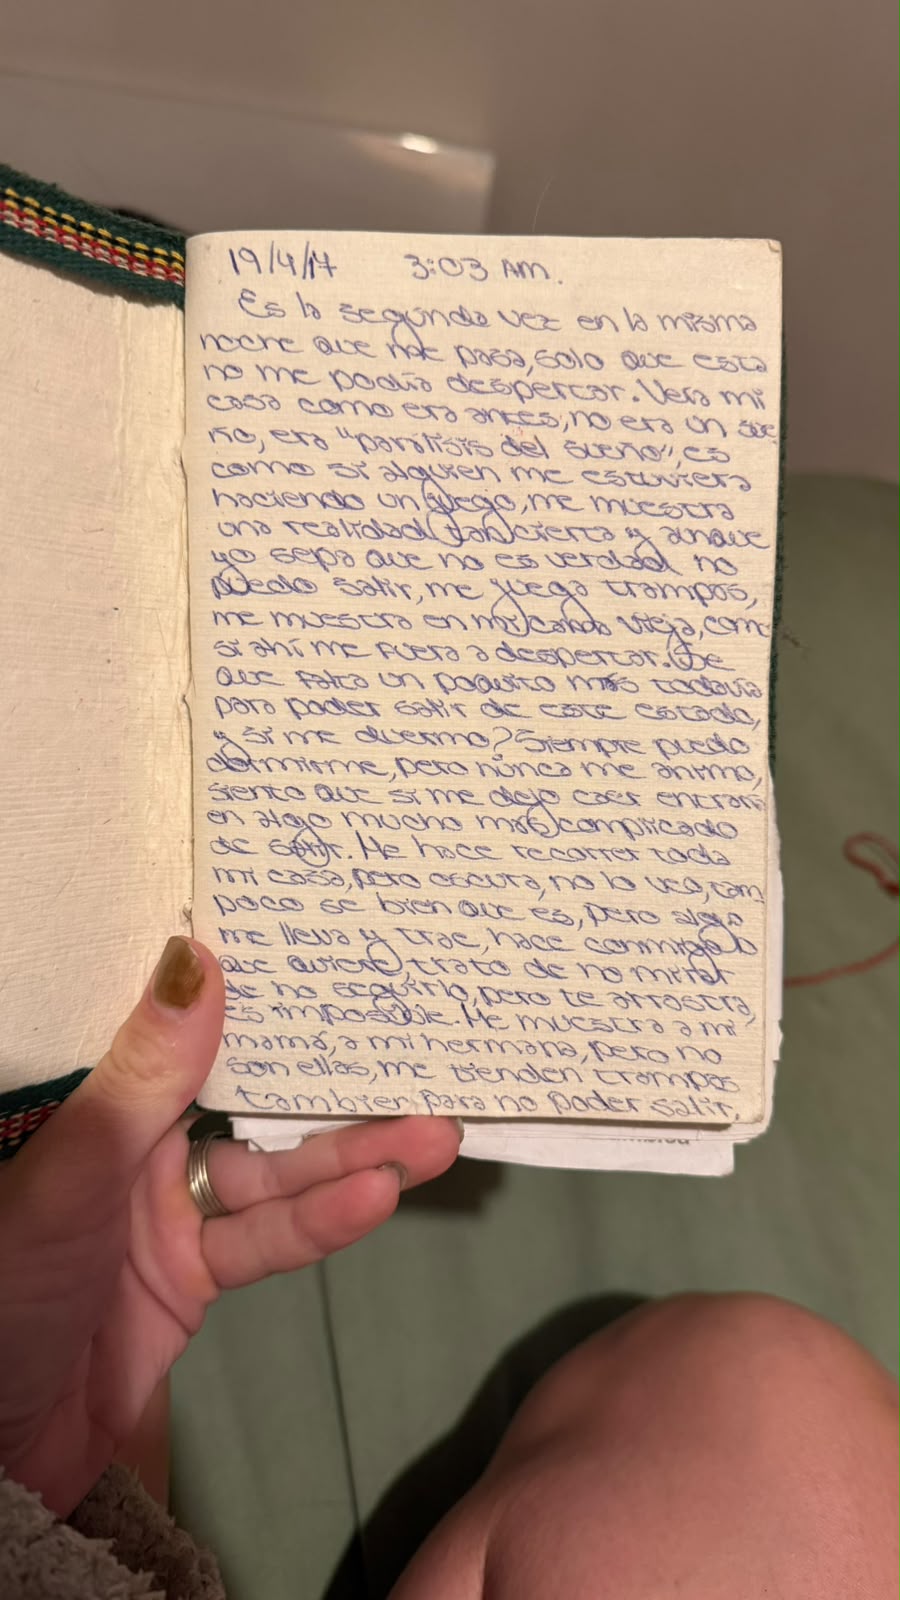 19/4/17 3:03 AM.
Es la segunda vez en la misma
noche que me pasa, solo que esta
no me podía despertar. Veía mi
casa como era antes, no era un sue
ño, era "parálisis del sueño", es
como si alguien me estuviera
haciendo un juego, me muestra
una realidad tan cierta y aunque
yo sepa que no es verdad no
puedo salir, me juega trampas,
me muestra en mi cama vieja, como
si ahí me fuera a despertar. Se
que falta un poquito más todavía
para poder salir de este estado,
y si me duermo? Siempre puedo
dormirme, pero nunca me animo,
siento que si me dejo caer entraría
en algo mucho más complicado
de salir. Me hace recorrer toda
mi casa, pero oscura, no lo veo, tam
poco se bien que es, pero algo
me lleva y trae, hace conmigo lo
que quiere, trato de no mirar
de no seguirlo, pero te arrastra,
es imposible. Me muestra a mi
mamá, a mi hermana, pero no
son ellas, me tienden trampas
también para no poder salir.